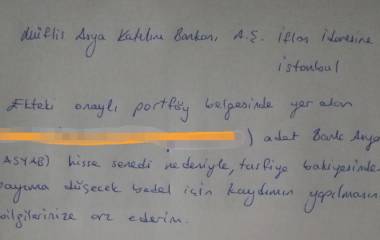 Müflis Asya Katılım Bankası A.Ş. İflas İdaresine
İstanbul
Ekteki onaylı portföy belgesinde yer alan
) adet Bank Asya
ASYAB) hisse senedi nedeniyle, tasfiye bakiyesinden
payıma düşecek bedel için kaydımın yapılmasını
bilgilerinize arz ederim.